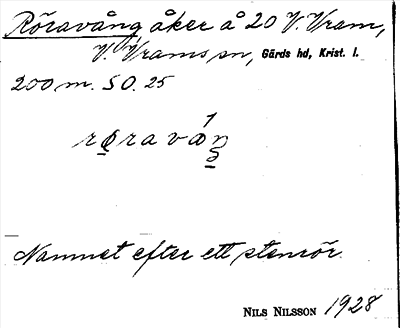 Röravång åker å 20 V. Vram,
V. Vrams sn, Gärds hd, Krist. l.
200 m. SO. 25
Namnet efter ett stenrör.
NILS NILSSON 1928